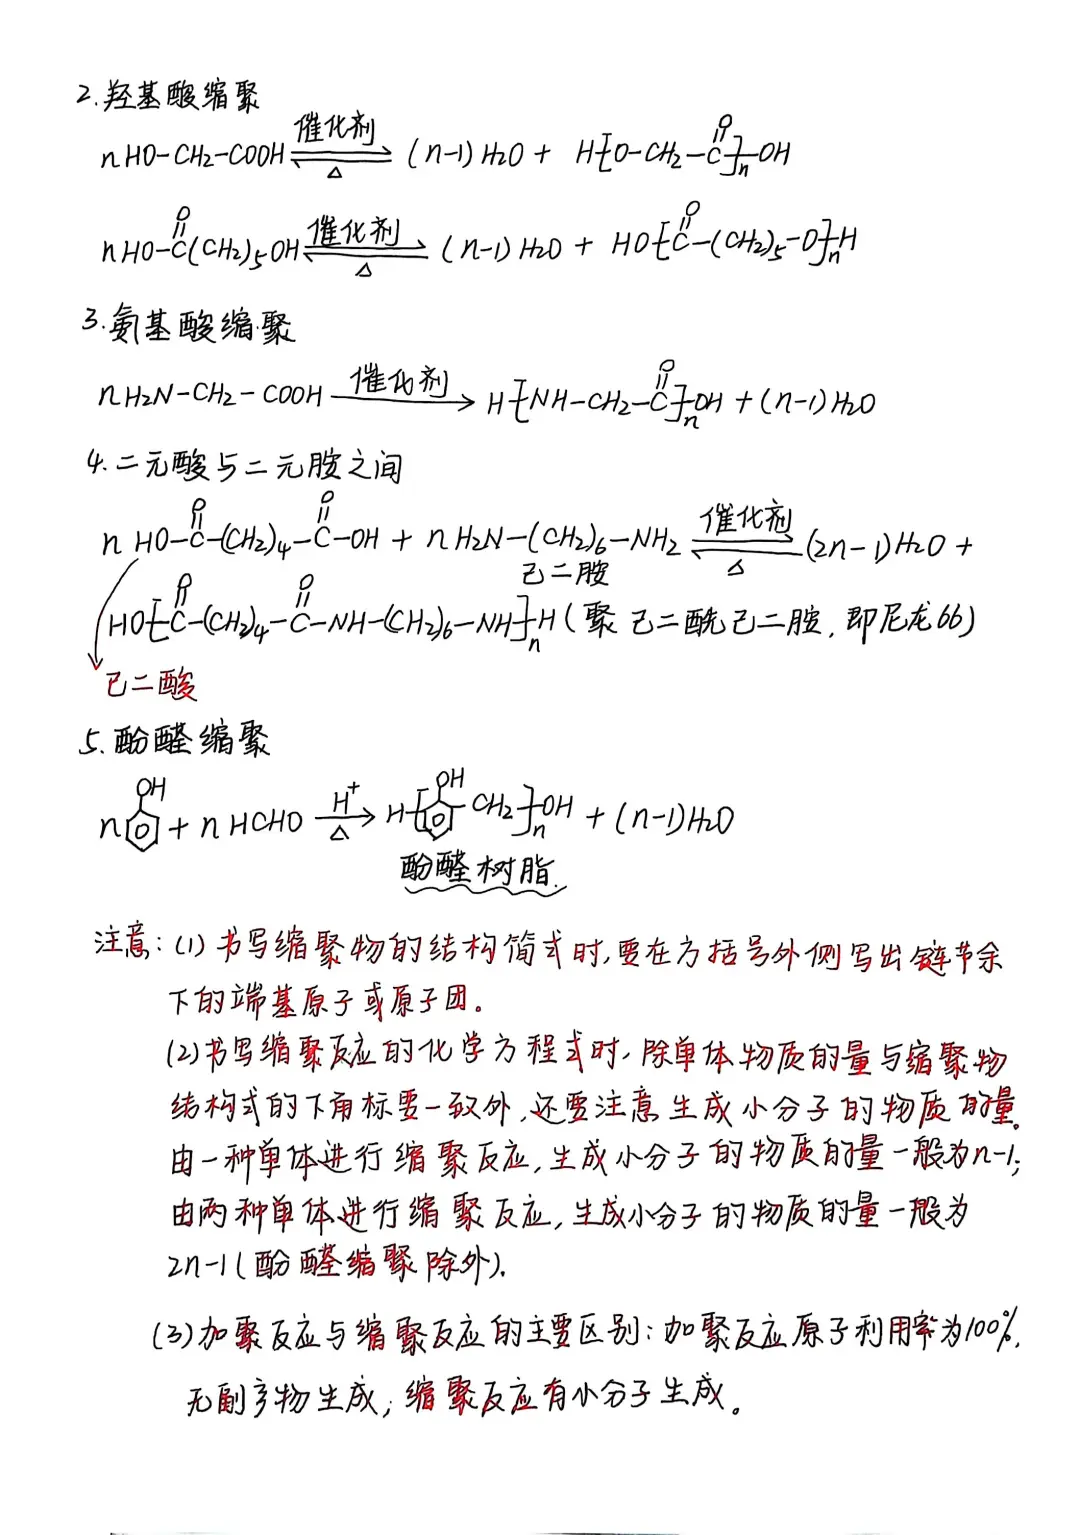 2.羟基酸缩聚
nHO-CH2-COOH ⇌(催化剂/△) (n-1)H2O + H⁅O-CH2-C(=O)⁆nOH
nHO-C(=O)(CH2)5OH ⇌(催化剂/△) (n-1)H2O + HO⁅C(=O)-(CH2)5-O⁆nH
3.氨基酸缩聚
nH2N-CH2-COOH →(催化剂) H⁅NH-CH2-C(=O)⁆nOH + (n-1)H2O
4.二元酸与二元胺之间
n HO-C(=O)-(CH2)4-C(=O)-OH + nH2N-(CH2)6-NH2 ⇌(催化剂/△) (2n-1)H2O +
己二胺
HO⁅C(=O)-(CH2)4-C(=O)-NH-(CH2)6-NH⁆nH (聚己二酰己二胺,即尼龙66)
己二酸
5.酚醛缩聚
n⌬OH + nHCHO →(H⁺/△) H⁅⌬(OH)-CH2⁆nOH + (n-1)H2O
酚醛树脂.
注意:(1)书写缩聚物的结构简式时,要在方括号外侧写出链节余
下的端基原子或原子团。
(2)书写缩聚反应的化学方程式时,除单体物质的量与缩聚物
结构式的下角标要一致外,还要注意生成小分子的物质的量。
由一种单体进行缩聚反应,生成小分子的物质的量一般为n-1;
由两种单体进行缩聚反应,生成小分子的物质的量一般为
2n-1(酚醛缩聚除外).
(3)加聚反应与缩聚反应的主要区别:加聚反应原子利用率为100%,
无副产物生成;缩聚反应有小分子生成。